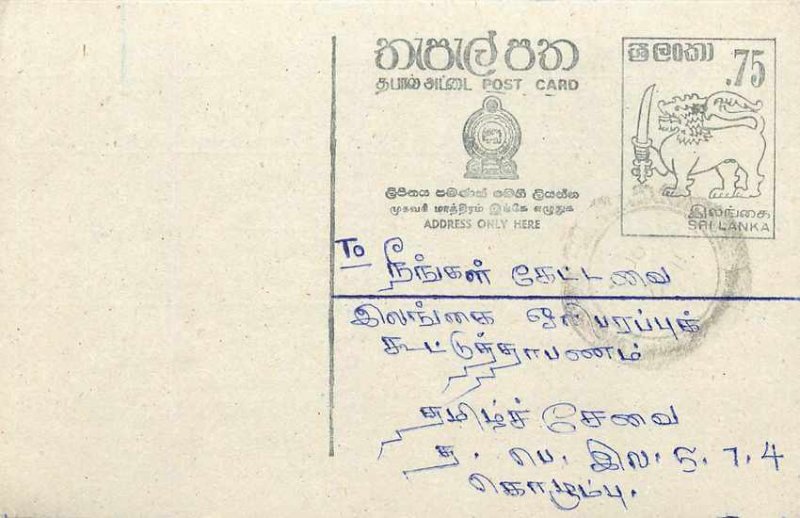 තැපැල් පත
தபால் அட்டை POST CARD
ලිපිනය පමණක් මෙහි ලියන්න
முகவரி மாத்திரம் இங்கே எழுதுக
ADDRESS ONLY HERE
ශ්‍රී ලංකා
.75
இலங்கை
SRI LANKA
To நீங்கள் கேட்டவை
இலங்கை ஒலிபரப்புக்
கூட்டுத்தாபனம்
தமிழ்ச் சேவை
த. பெ. இல. 5.7.4
கொழும்பு.